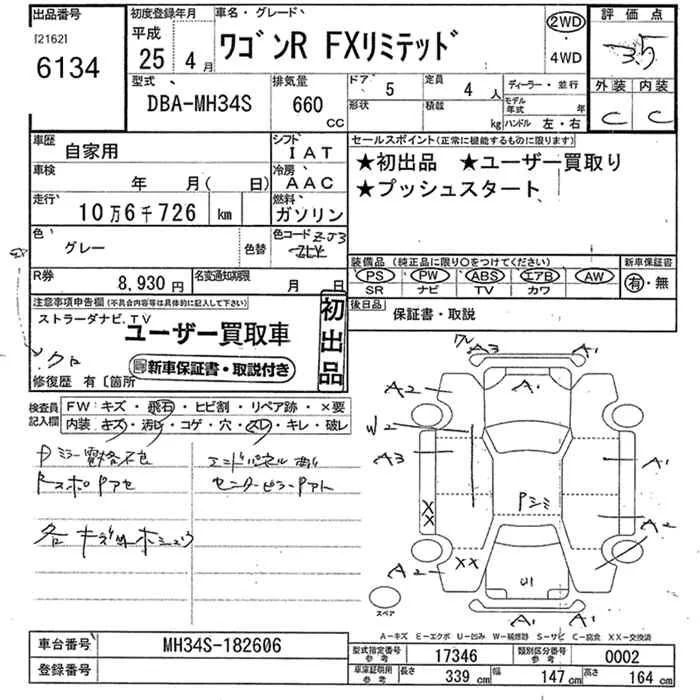 出品番号 初度登録年月 車名・グレード 2WD 評価点
[2162] 平成
6134 25 4月 ワゴンR FXリミテッド ・ 3.5
4WD
型式 排気量 ドア 5 定員 4人 ディーラー・並行 外装 内装
DBA-MH34S 660 CC 形状 積載 kg モデル年式 年 C C
ハンドル 左・右
車歴 自家用 シフト IAT セールスポイント(正常に機能するものに限り)
車検 年 月( 日) 冷房 AAC ★初出品 ★ユーザー買取り
走行 10万6千726 km 燃料 ガソリン ★プッシュスタート
色 グレー 色替 色コード ZJ3
装備品(純正品に限り○をつけてください) 新車保証書
R券 8,930円 名変通知期限 月 日 PS PW ABS エアB AW 有・無
SR ナビ TV カワ
注意事項申告欄(不具合内容等は具体的に記入して下さい) 初出品 後日品 保証書・取説
ストラーダナビ.TV
ユーザー買取車
新車保証書・取説付き
修復歴 有〔箇所
検査員記入欄 FW:キズ・飛石・ヒビ割・リペア跡・×要
内装:キズ・汚れ・コゲ・穴・スレ・キレ・破レ
A3 A1
A2 A1 A2
W2
A3 A1
XX Pシミ A2
A2 XX U1
A1
スペア
A-キズ E-エクボ U-凹み W-補修跡 S-サビ C-腐食 XX-交換済
車台番号 MH34S-182606 型式指定番号 参考 17346 類別区分番号 参考 0002
登録番号 車庫証明用 参考 長さ 339cm 幅 147cm 高さ 164cm